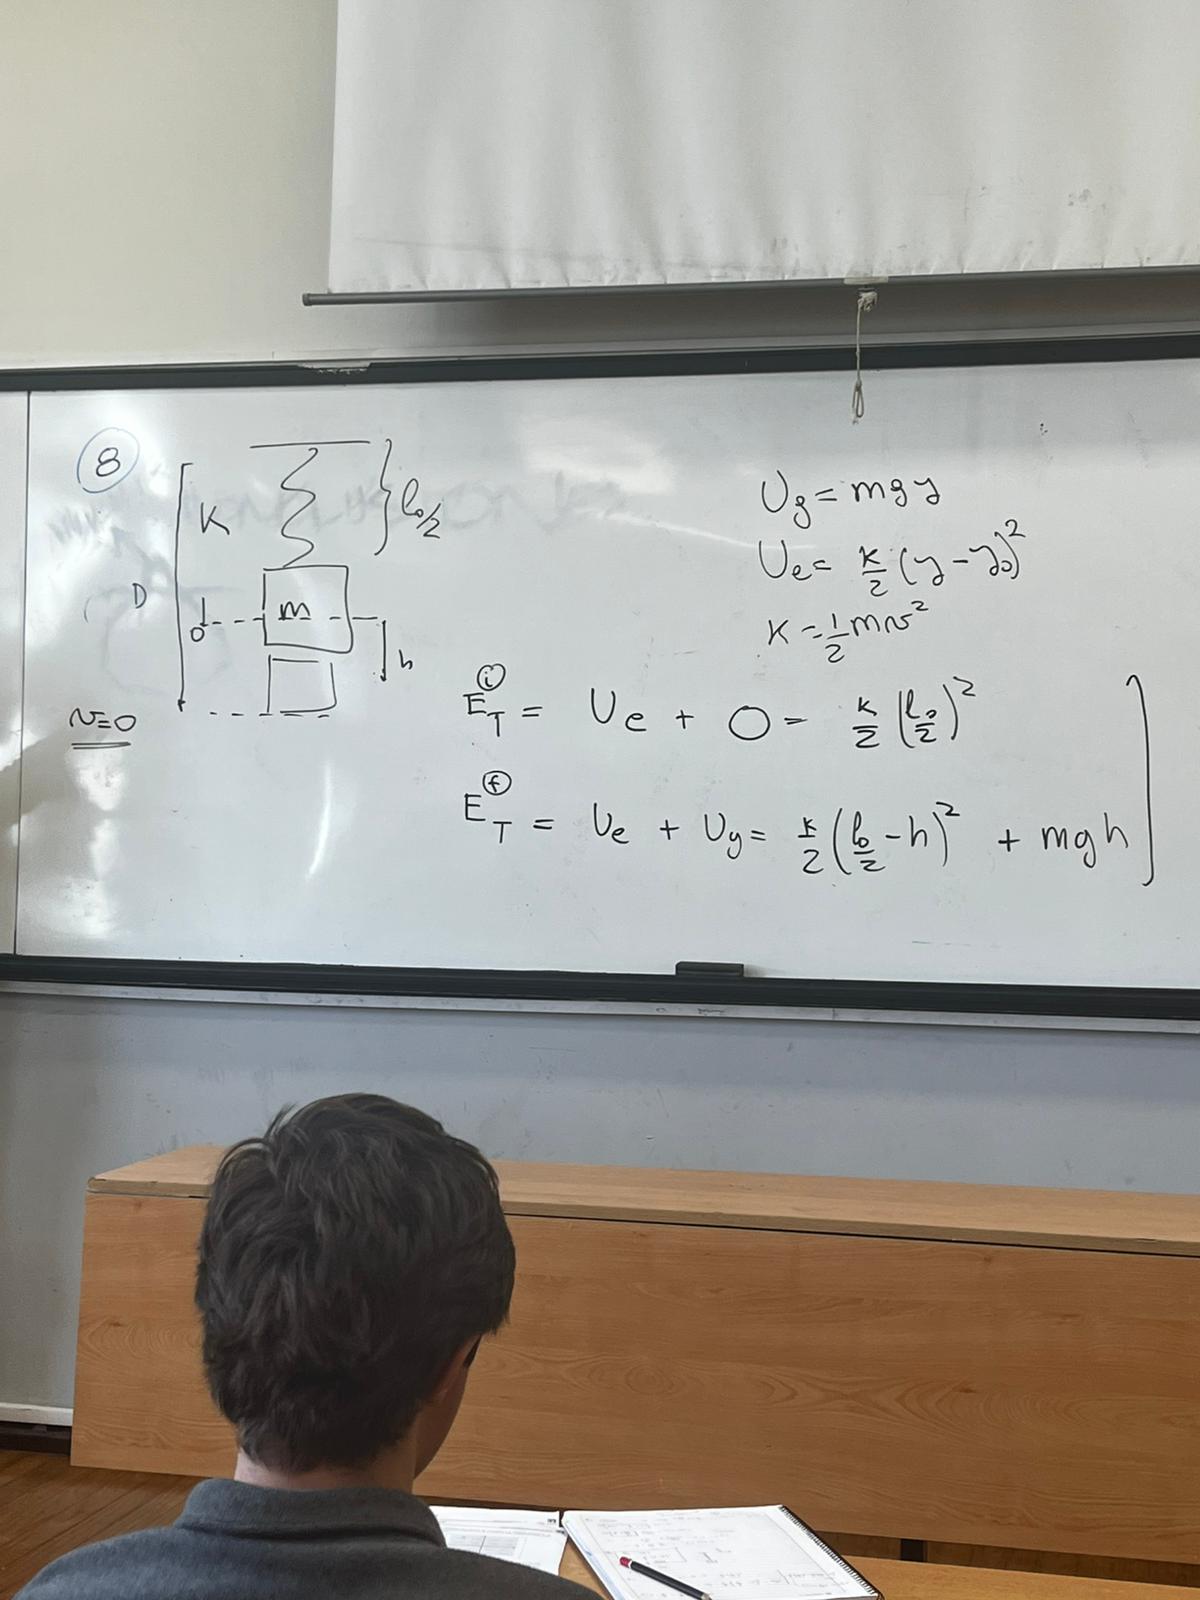 8
K
l₀/2
D
0
m
h
v=0
U_g = mgy
U_e = k/2 (y-y₀)²
K = 1/2 mv²
E_T^(i) = U_e + 0 = k/2 (l₀/2)²
E_T^(f) = U_e + U_g = k/2 (l₀/2 - h)² + mgh